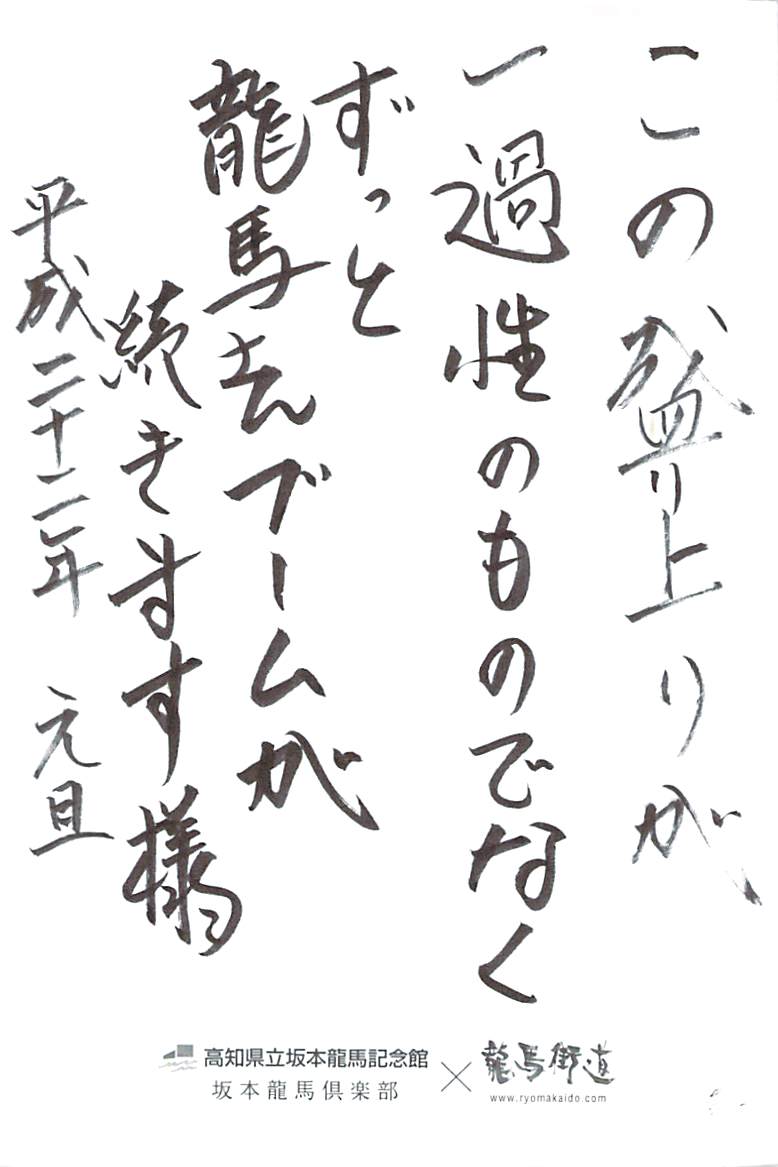 この盛り上りが
一過性のものでなく
ずっと
龍馬さんブームが
続きます様
平成二十二年 元旦
高知県立坂本龍馬記念館
坂本龍馬倶楽部
×
龍馬街道
www.ryomakaido.com